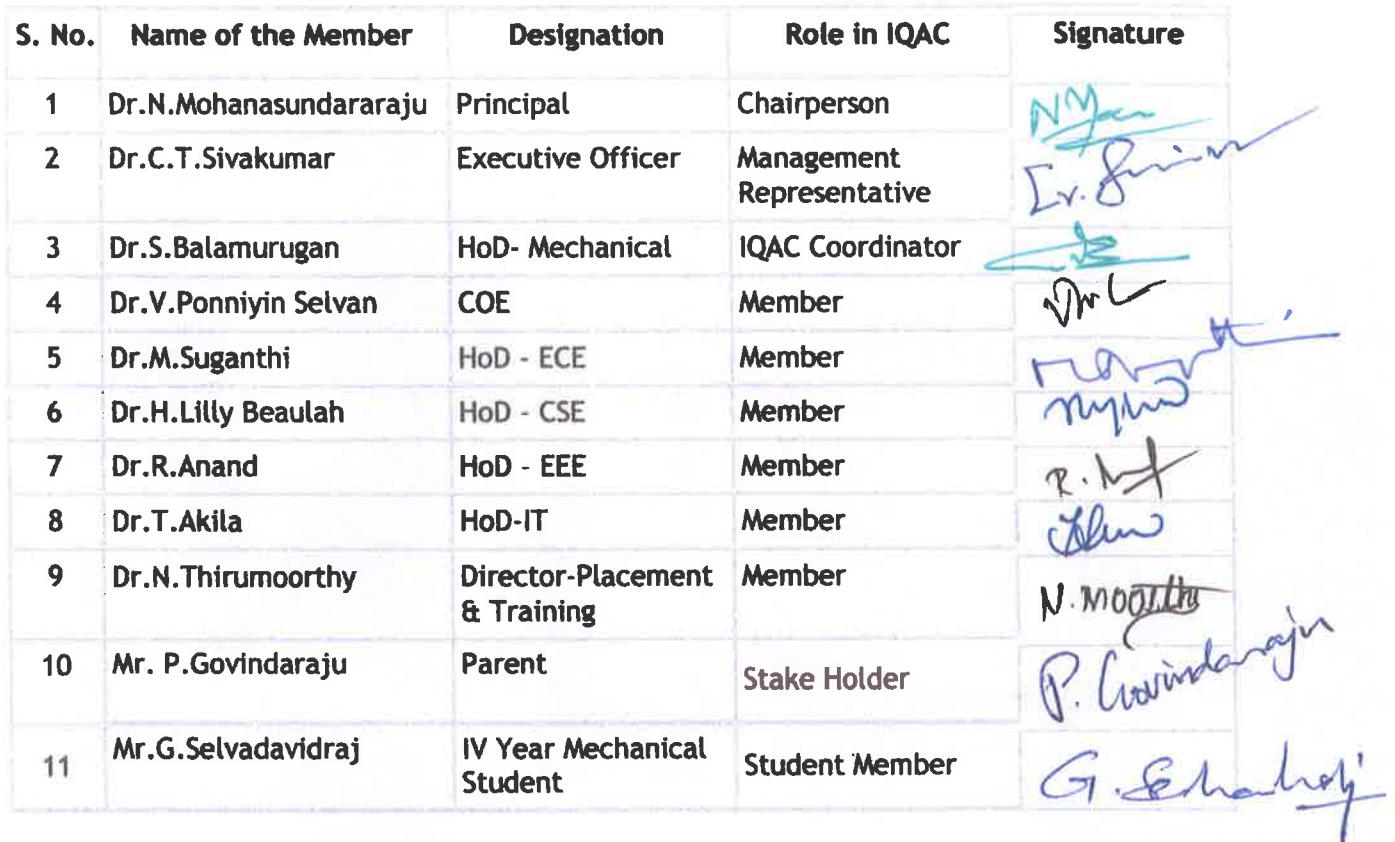 S. No. Name of the Member Designation Role in IQAC Signature
1 Dr.N.Mohanasundararaju Principal Chairperson
2 Dr.C.T.Sivakumar Executive Officer Management
Representative
3 Dr.S.Balamurugan HoD- Mechanical IQAC Coordinator
4 Dr.V.Ponniyin Selvan COE Member
5 Dr.M.Suganthi HoD - ECE Member
6 Dr.H.Lilly Beaulah HoD - CSE Member
7 Dr.R.Anand HoD - EEE Member
8 Dr.T.Akila HoD-IT Member
9 Dr.N.Thirumoorthy Director-Placement Member
& Training
N.
10 Mr. P.Govindaraju Parent Stake Holder P. Govindaraju
11 Mr.G.Selvadavidraj IV Year Mechanical Student Member G.
Student